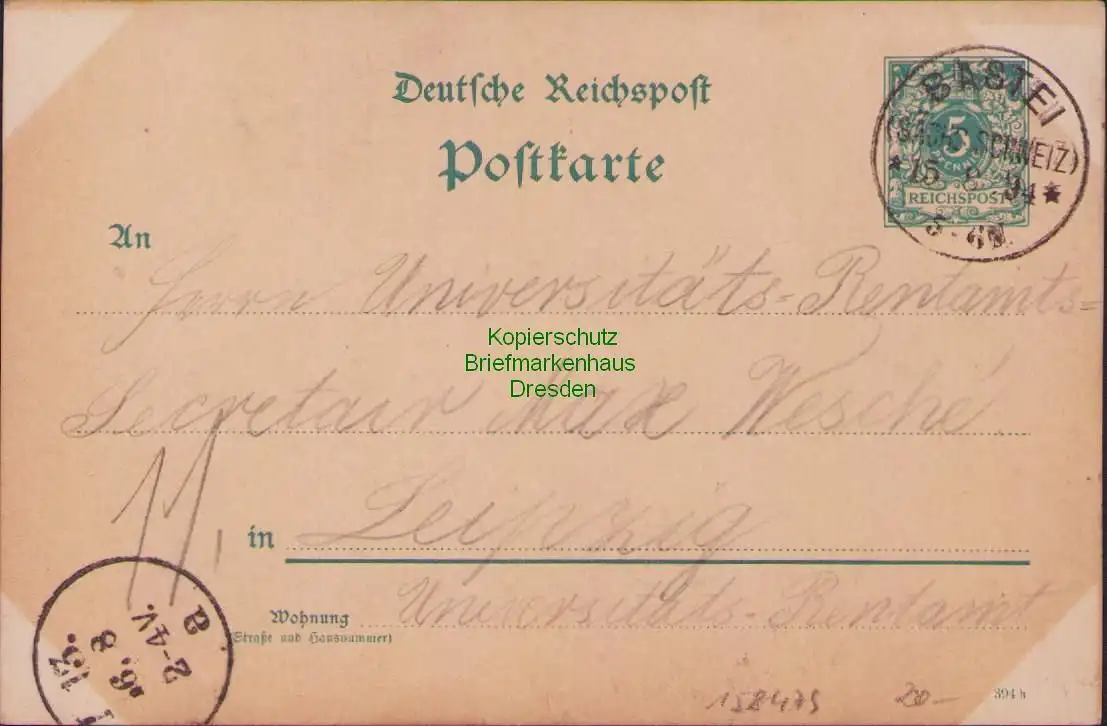 Deutsche Reichspost
Postkarte
BASTEI
(SÄCHS. SCHWEIZ)
* 15 8 94 *
5-6N.
5
PFENNIG
REICHSPOST
An
Herrn Universitäts-Rentamts-
Secretair Max Wesché.
11.
in Leipzig
Wohnung Universitäts-Rentamt
(Straße und Hausnummer)
13.
16.8
2-4V.
a
158479
20-
394 h
Kopierschutz
Briefmarkenhaus
Dresden